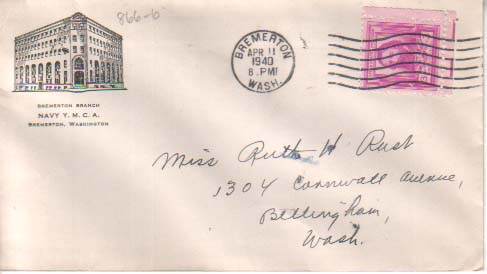 866-6
BREMERTON BRANCH
NAVY Y. M. C. A.
BREMERTON, WASHINGTON
BREMERTON
APR 11
1940
8 PM
WASH.
Miss Ruth H Rust
1304 Cornwall Avenue,
Bellingham,
Wash.